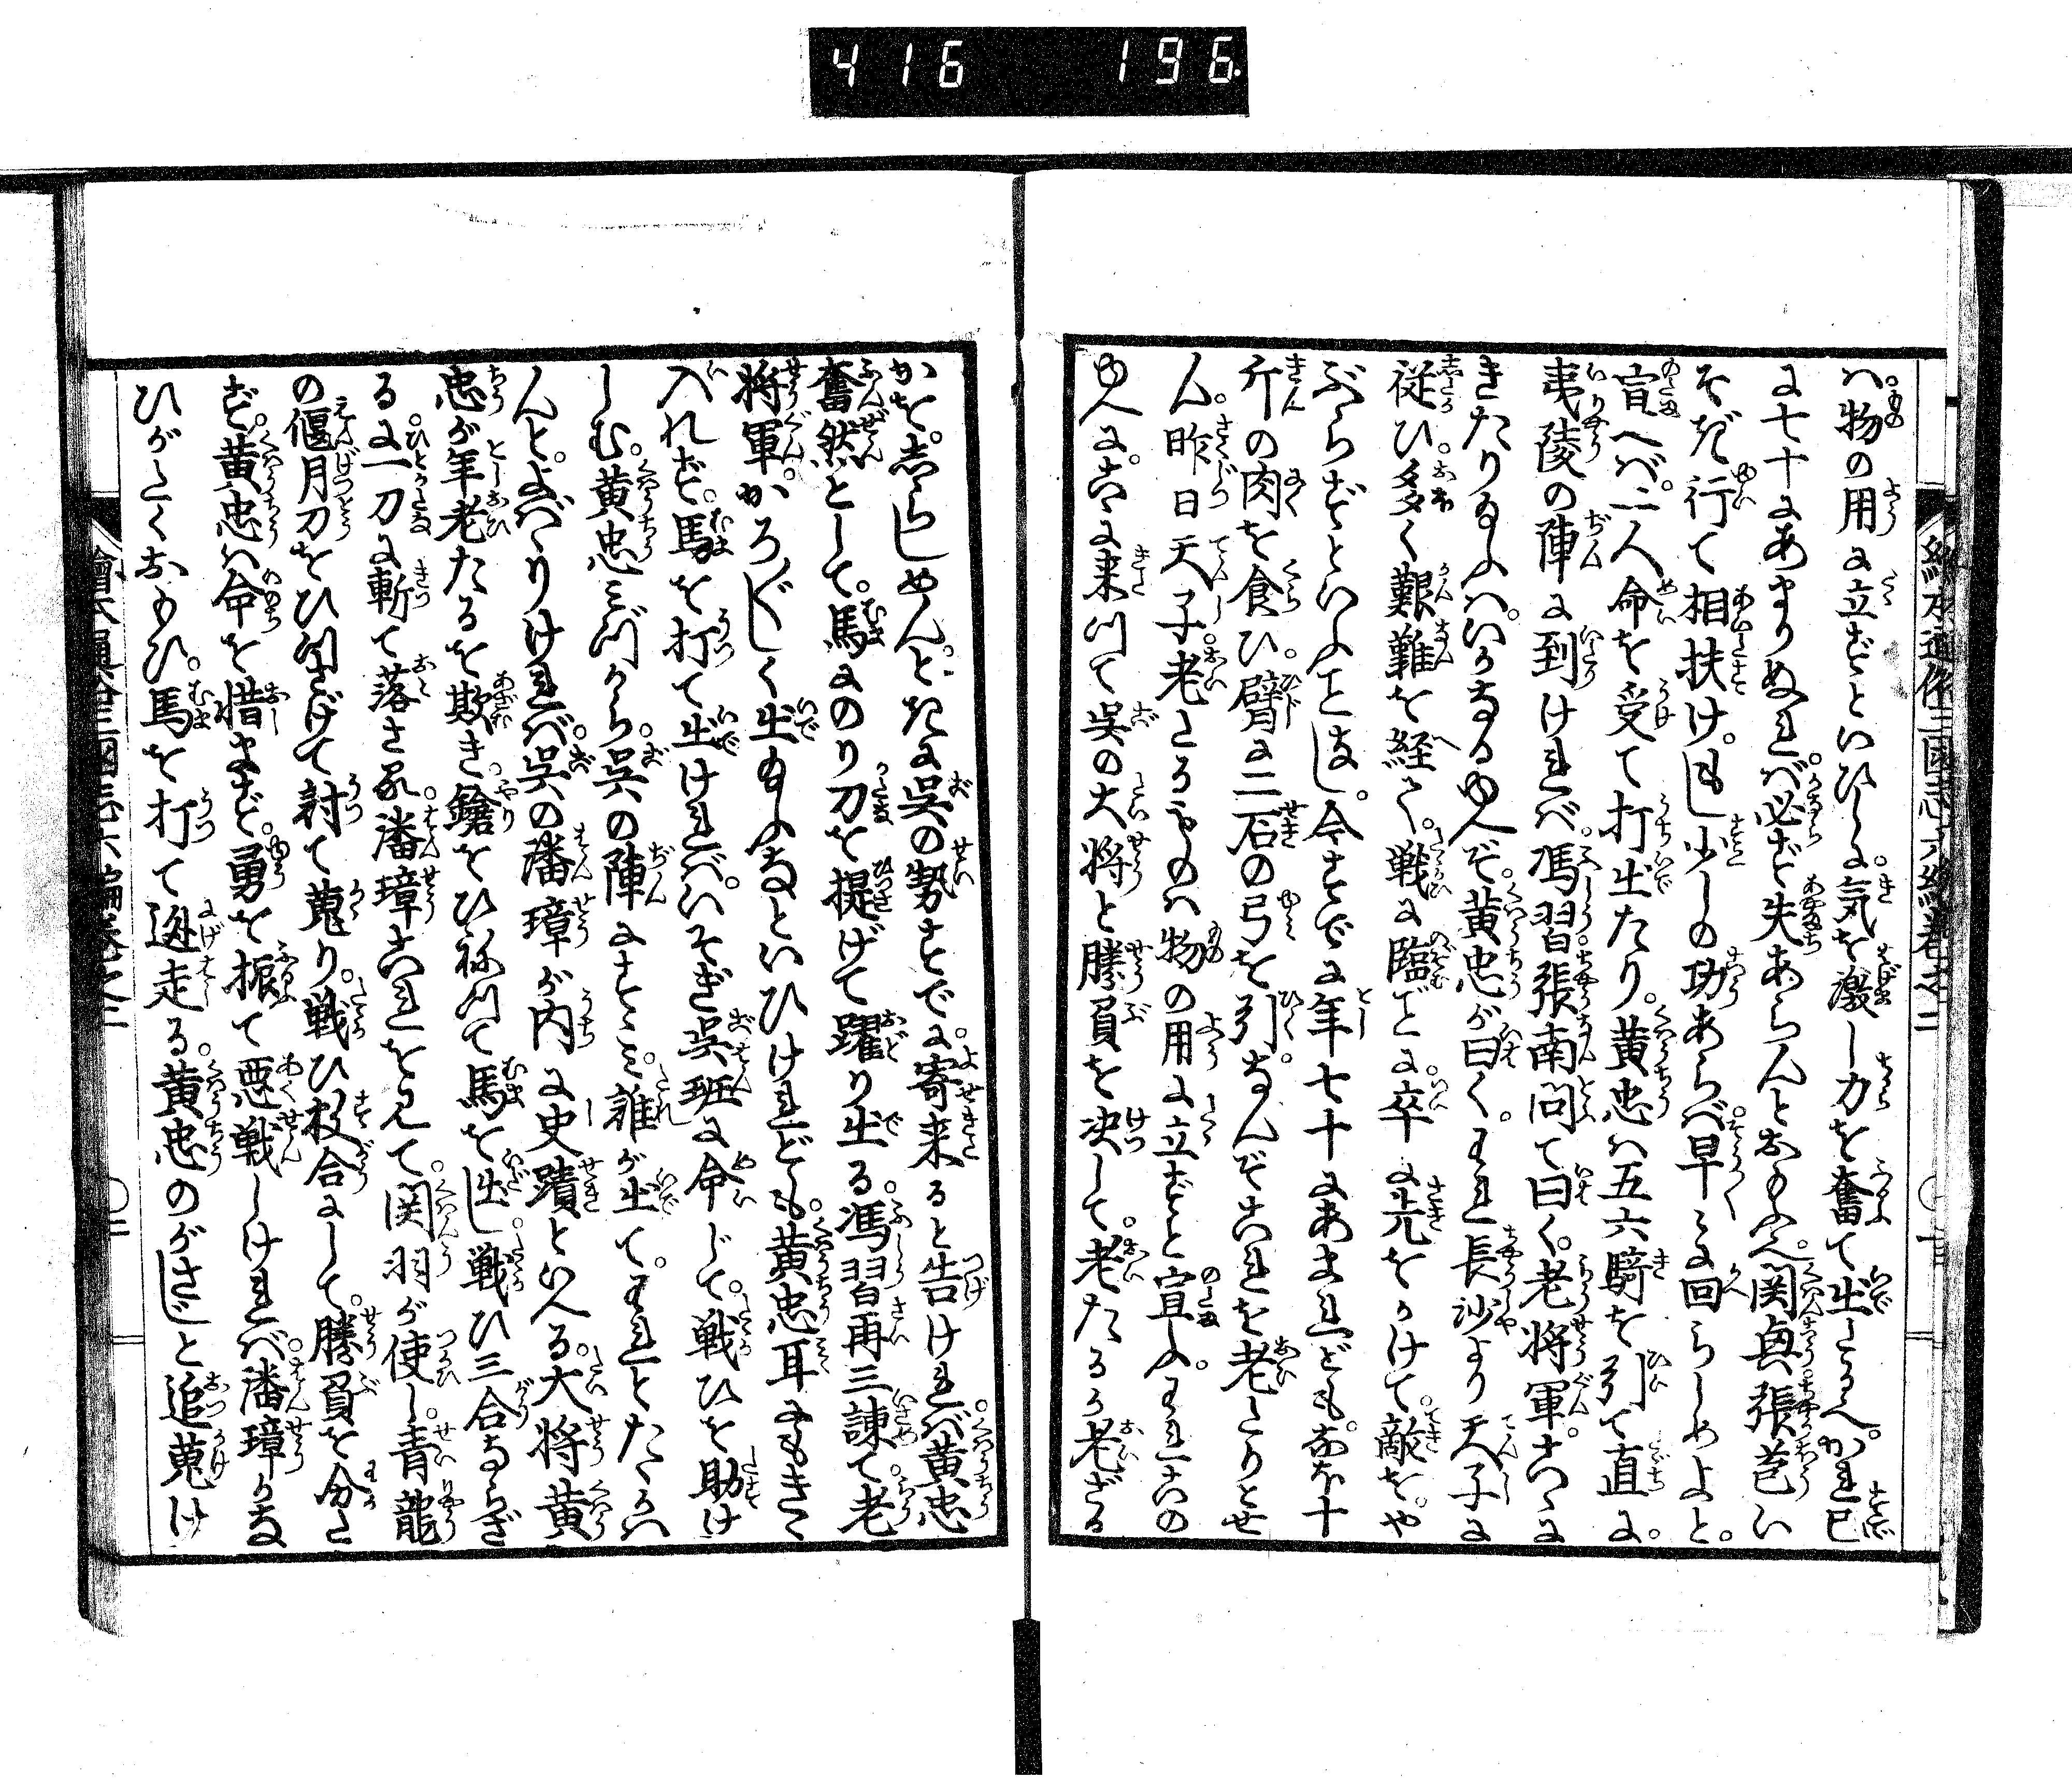 416 196.
繪本通俗三國志六編巻之二
ハ物の用に立ずといひしに気を激し力を奮て出たるらん。かれ已
に七十にあまりぬれバ必ず失あらんとおもふ。関興張苞い
そぎ行て相扶け。もし少しの功あらバ早々に回らしめよと。
宣へバ二人命を受て打出たり。黄忠ハ五六騎を引て直に。
夷陵の陣に到けれバ。馮習張南問て曰く。老将軍こゝに
きたり玉ふハ。いかなるゆへぞ。黄忠が曰く。われ長沙より天子に
従ひ。多く艱難を経て。戦に臨ごとに。卒に先をかけて。敵をや
ぶらずといふことなし。今までに年七十にあまれども。なほ十
斤の肉を食ひ。臂に二石の弓を引。なんぞこれを老たりとせ
ん。昨日天子。老たるものハ物の用に立ずと宣ふ。われこの
ゆへに。こゝに来つて呉の大将と勝負を决して。老たるか老ざる
かを。志らしめんと。ときに呉の勢まで。に寄来ると告けれバ黄忠
奮然として。馬にのり刀を提げて躍り出る。馮習再三諌て老
将軍。かろ〴〵しく出玉ふなといひけれども。黄忠耳にもきゝ
入れず。馬を打て出けれバ。いそぎ呉班に命じて。戦ひを助け
しむ。黄忠みづから。呉の陣にすゝみ。誰が出て。われとたゝかハ
んとよバゝりけれバ。呉の潘璋が内に史蹟といへる。大将黄
忠が年老たるを欺き。鎗をひねつて馬を出し。戦ひ三合ならざ
るに一刀に斬て落さる。潘璋これを見て。関羽が使し。青龍
の偃月刀をひつさげて討て蒐り。戦ひ数合にして。勝負を分た
ず。黄忠ハ命を惜まず。勇を振て悪戦しけれバ。潘璋かな
ひがたくおもひ。馬を打て逃走る。黄忠のがさじと追蒐け
繪本通俗三國志六編巻之二
〇二